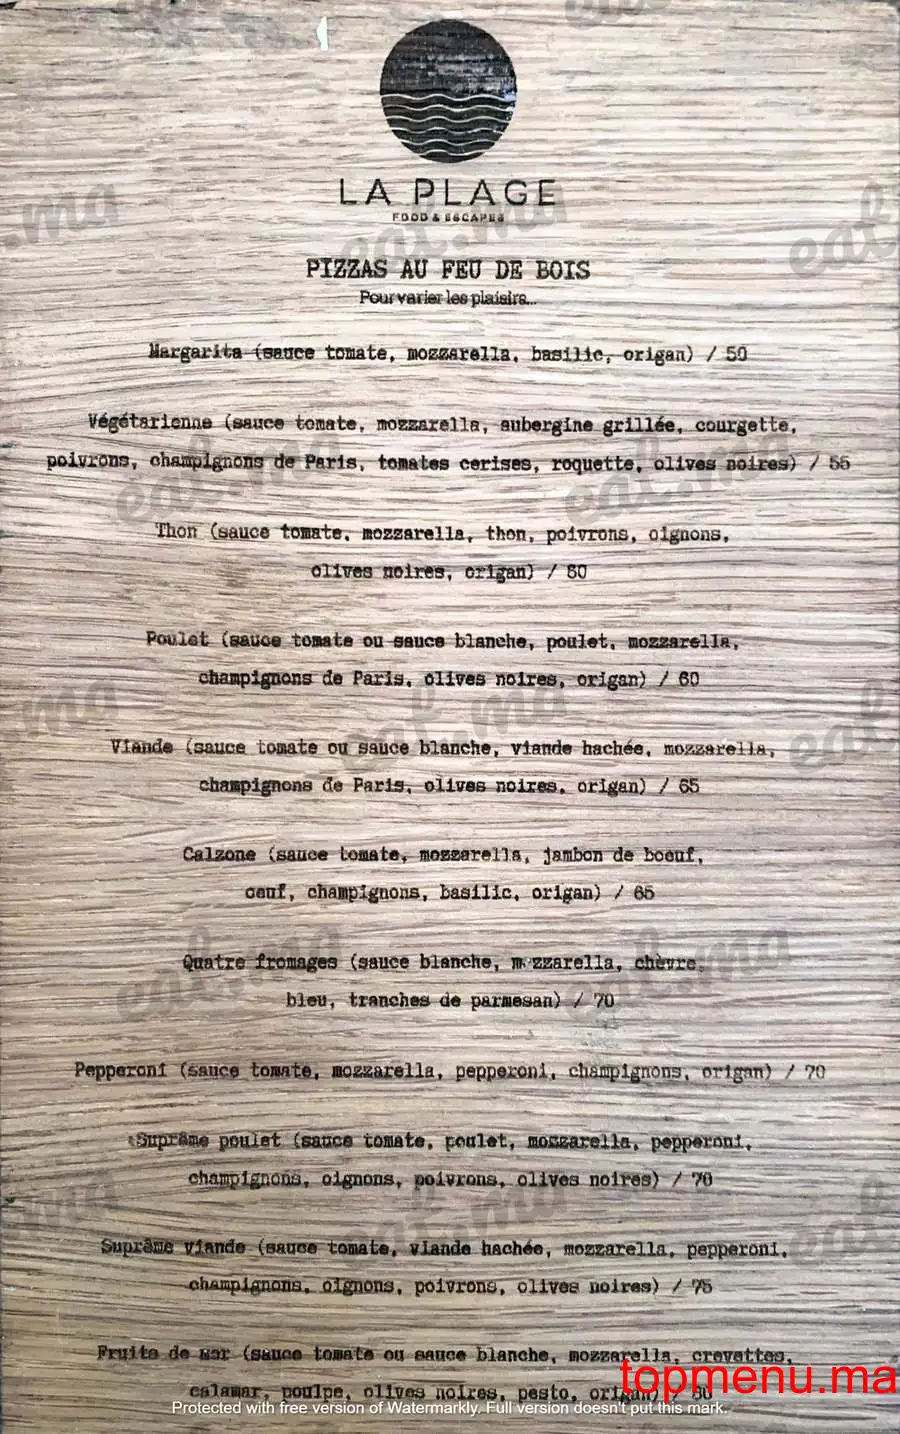 LA PLAGE
FOOD & ESCAPES
PIZZAS AU FEU DE BOIS
Pour varier les plaisirs...
Margarita (sauce tomate, mozzarella, basilic, origan) / 50
Végétarienne (sauce tomate, mozzarella, aubergine grillée, courgette,
poivrons, champignons de Paris, tomates cerises, roquette, olives noires) / 55
Thon (sauce tomate, mozzarella, thon, poivrons, oignons,
olives noires, origan) / 60
Poulet (sauce tomate ou sauce blanche, poulet, mozzarella,
champignons de Paris, olives noires, origan) / 60
Viande (sauce tomate ou sauce blanche, viande hachée, mozzarella,
champignons de Paris, olives noires, origan) / 65
Calzone (sauce tomate, mozzarella, jambon de boeuf,
oeuf, champignons, basilic, origan) / 65
Quatre fromages (sauce blanche, mozzarella, chèvre,
bleu, tranches de parmesan) / 70
Pepperoni (sauce tomate, mozzarella, pepperoni, champignons, origan) / 70
Suprême poulet (sauce tomate, poulet, mozzarella, pepperoni,
champignons, oignons, poivrons, olives noires) / 70
Suprême viande (sauce tomate, viande hachée, mozzarella, pepperoni,
champignons, oignons, poivrons, olives noires) / 75
Fruits de mar (sauce tomate ou sauce blanche, mozzarella, crevettes,
calamar, poulpe, olives noires, pesto, origan) / 80
topmenu.ma
Protected with free version of Watermarkly. Full version doesn't put this mark.
eat.ma